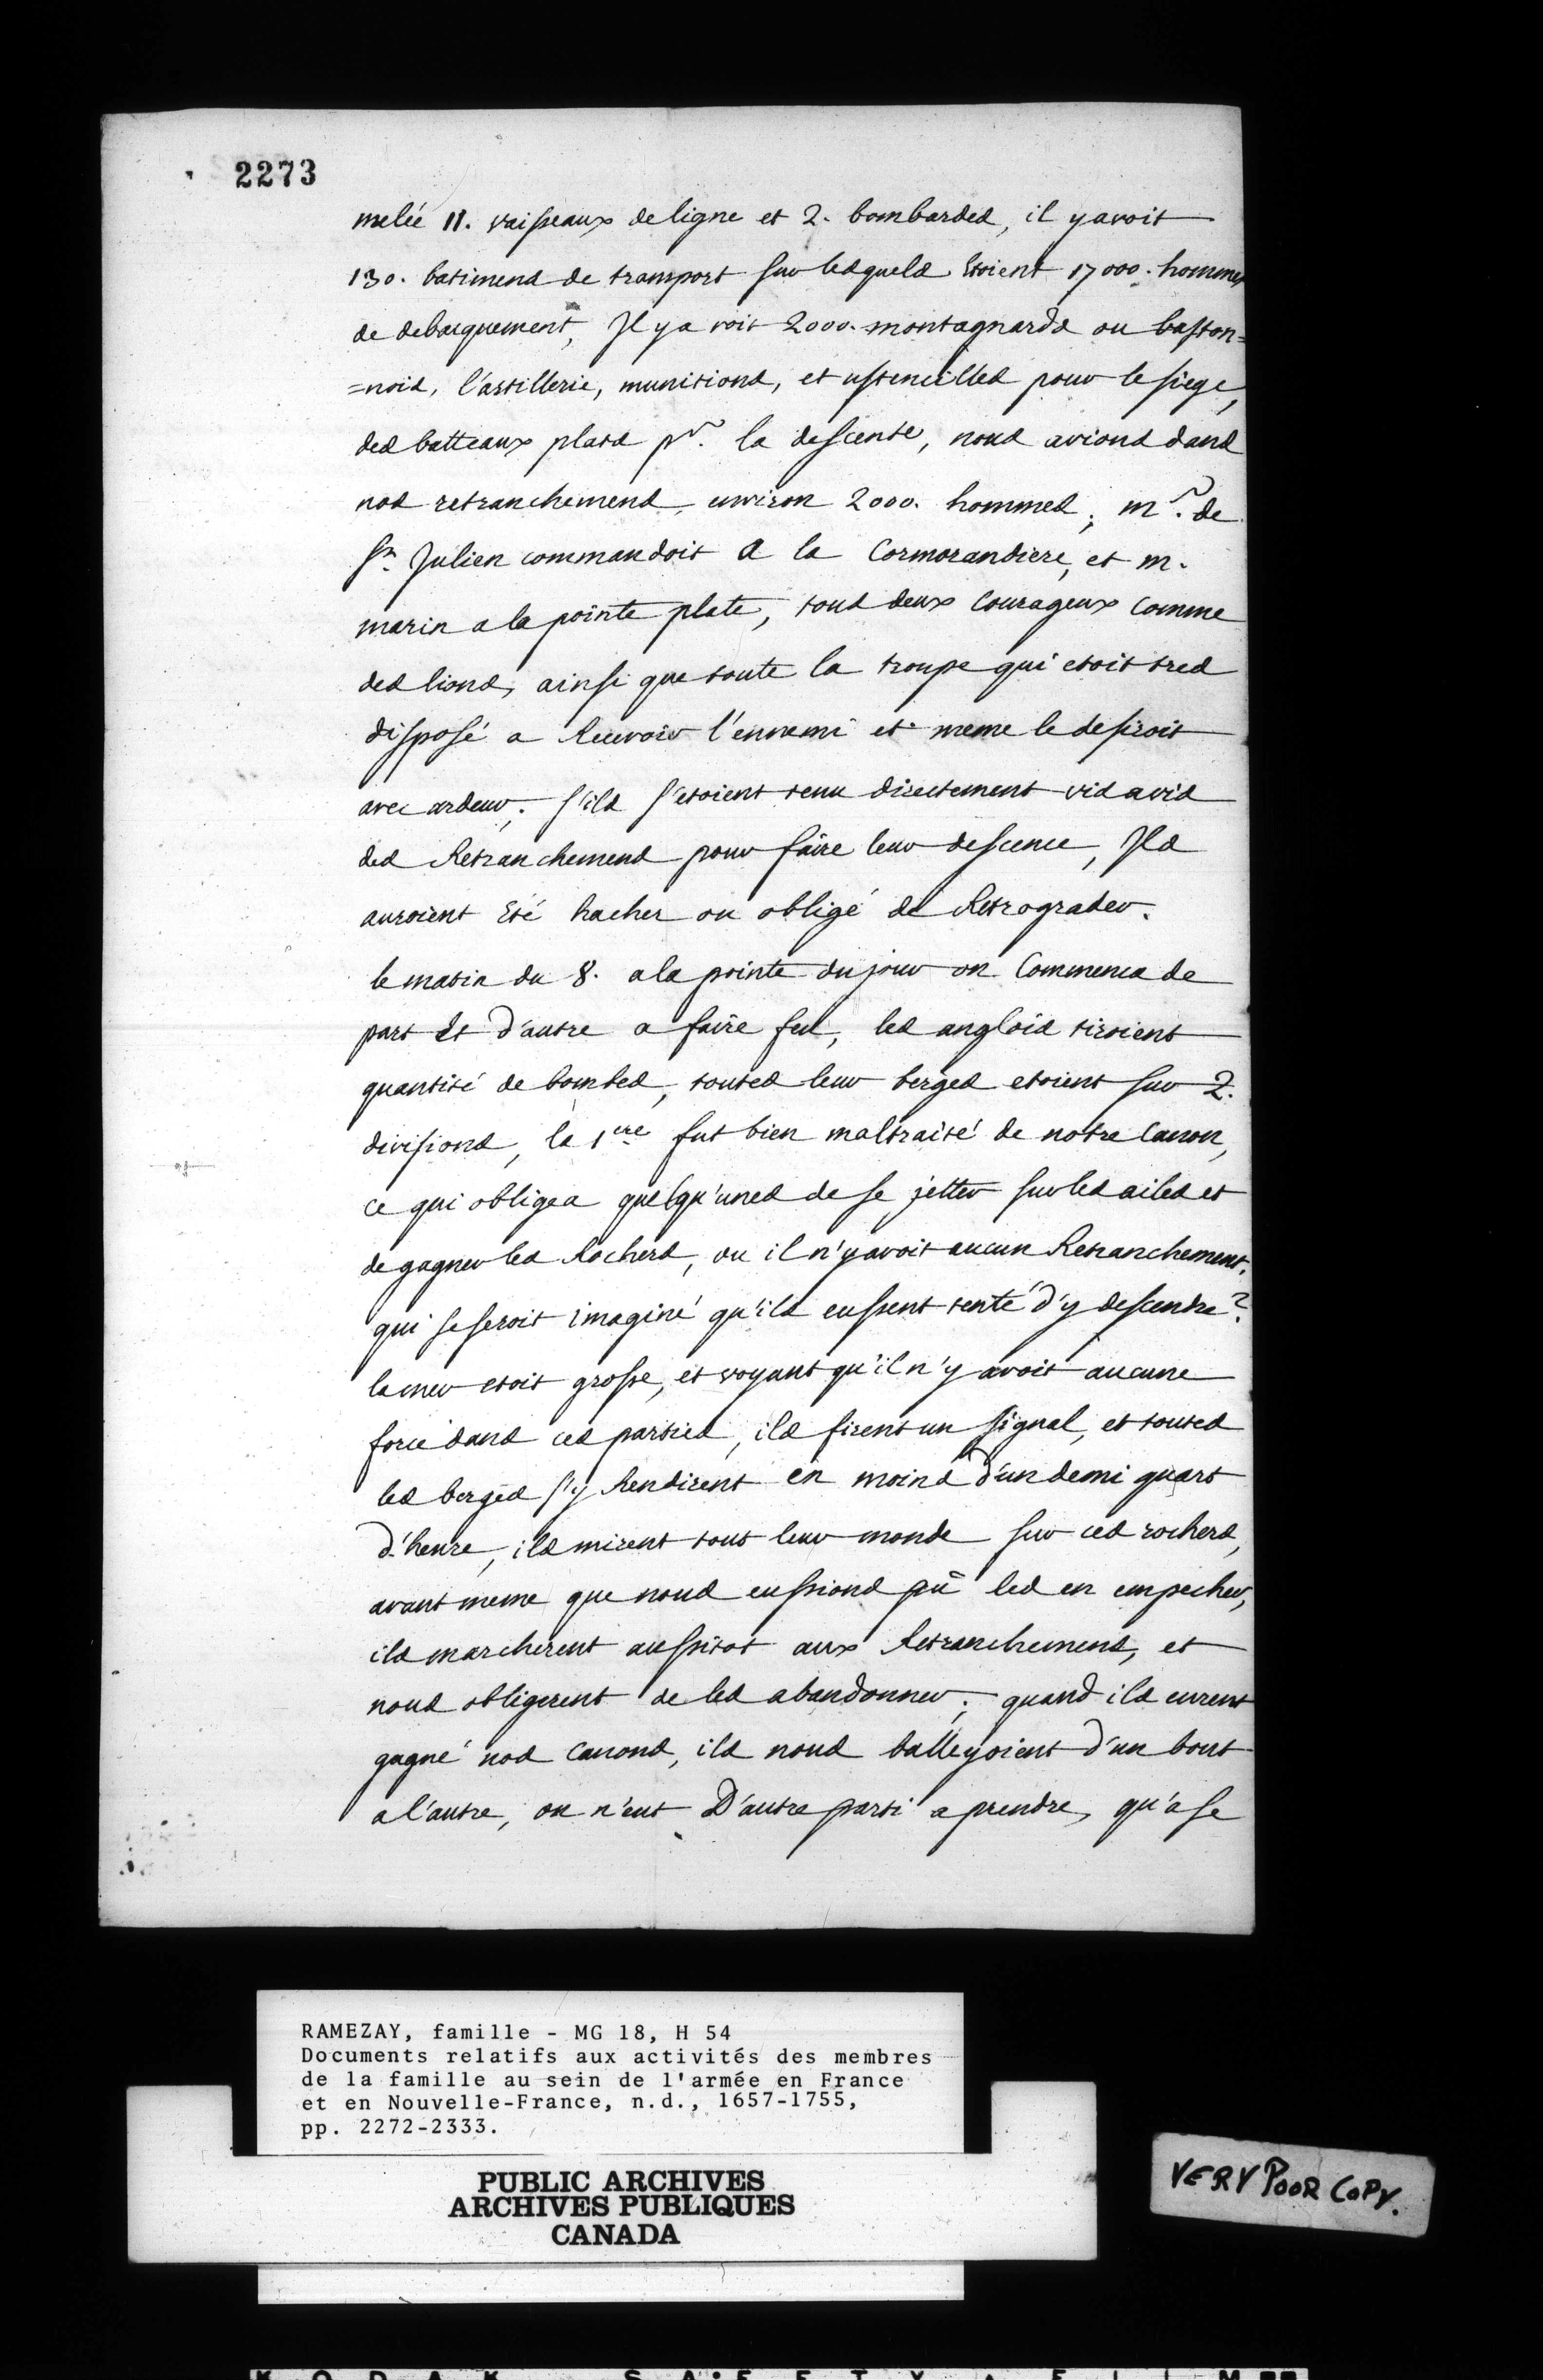 2273
melée 11. vaisseaux de ligne et 2. bombardes, il y avoit
130. batimens de transport sur lesquels étoient 17000. hommes
de debarquement, Il y a voit 2000. montagnards ou baston=
=nois, l'artillerie, munitions, et ustencilles pour le siege,
des batteaux plats pr. la descente, nous avions dans
nos retranchemens environ 2000. hommes; mr. de
St. Julien commandoit a la Cormorandiere, et m.
marin a la pointe plate, tous deux Courageux Comme
des lions, ainsi que toute la troupe qui etoit tres
disposé a Recevoir l'ennemi et meme le desiroit
avec ardeur; s'ils s'etoient tenu directement vis avis
des Retranchemens pour faire leur descence, Ils
auroient été hacher ou obligé de Retrograder.
le matin du 8. a la pointe du jour on Commenca de
part et d'autre a faire feu, les anglois tiroient
quantité de bombes, toutes leur berges etoient sur 2.
divisions, la 1ere fut bien maltraité de notre Canon,
ce qui obligea quelqu'unes de se jetter sur les ailes et
de gagner les Rochers, ou il n'y avoit aucun Retranchement.
qui se seroit imaginé qu'ils eussent tenté d'y descendre?
la mer etoit grosse, et voyant qu'il n'y avoit aucune
force dans ces parties, ils firent un signal, et toutes
les berges s'y Rendirent en moins d'un demi quart
d'heure, ils mirent tout leur monde sur ces rochers,
avant meme que nous eussions pû les en empecher,
ils marcherent aussitot aux Retranchemens, et
nous obligerent de les abandonner; quand ils eurent
gagné nos Canons, ils nous balleyoient d'un bout
a l'autre, on n'eut D'autre parti a prendre, qu'a se
RAMEZAY, famille - MG 18, H 54
Documents relatifs aux activités des membres
de la famille au sein de l'armée en France
et en Nouvelle-France, n.d., 1657-1755,
pp. 2272-2333.
PUBLIC ARCHIVES
ARCHIVES PUBLIQUES
CANADA
VERY POOR COPY.